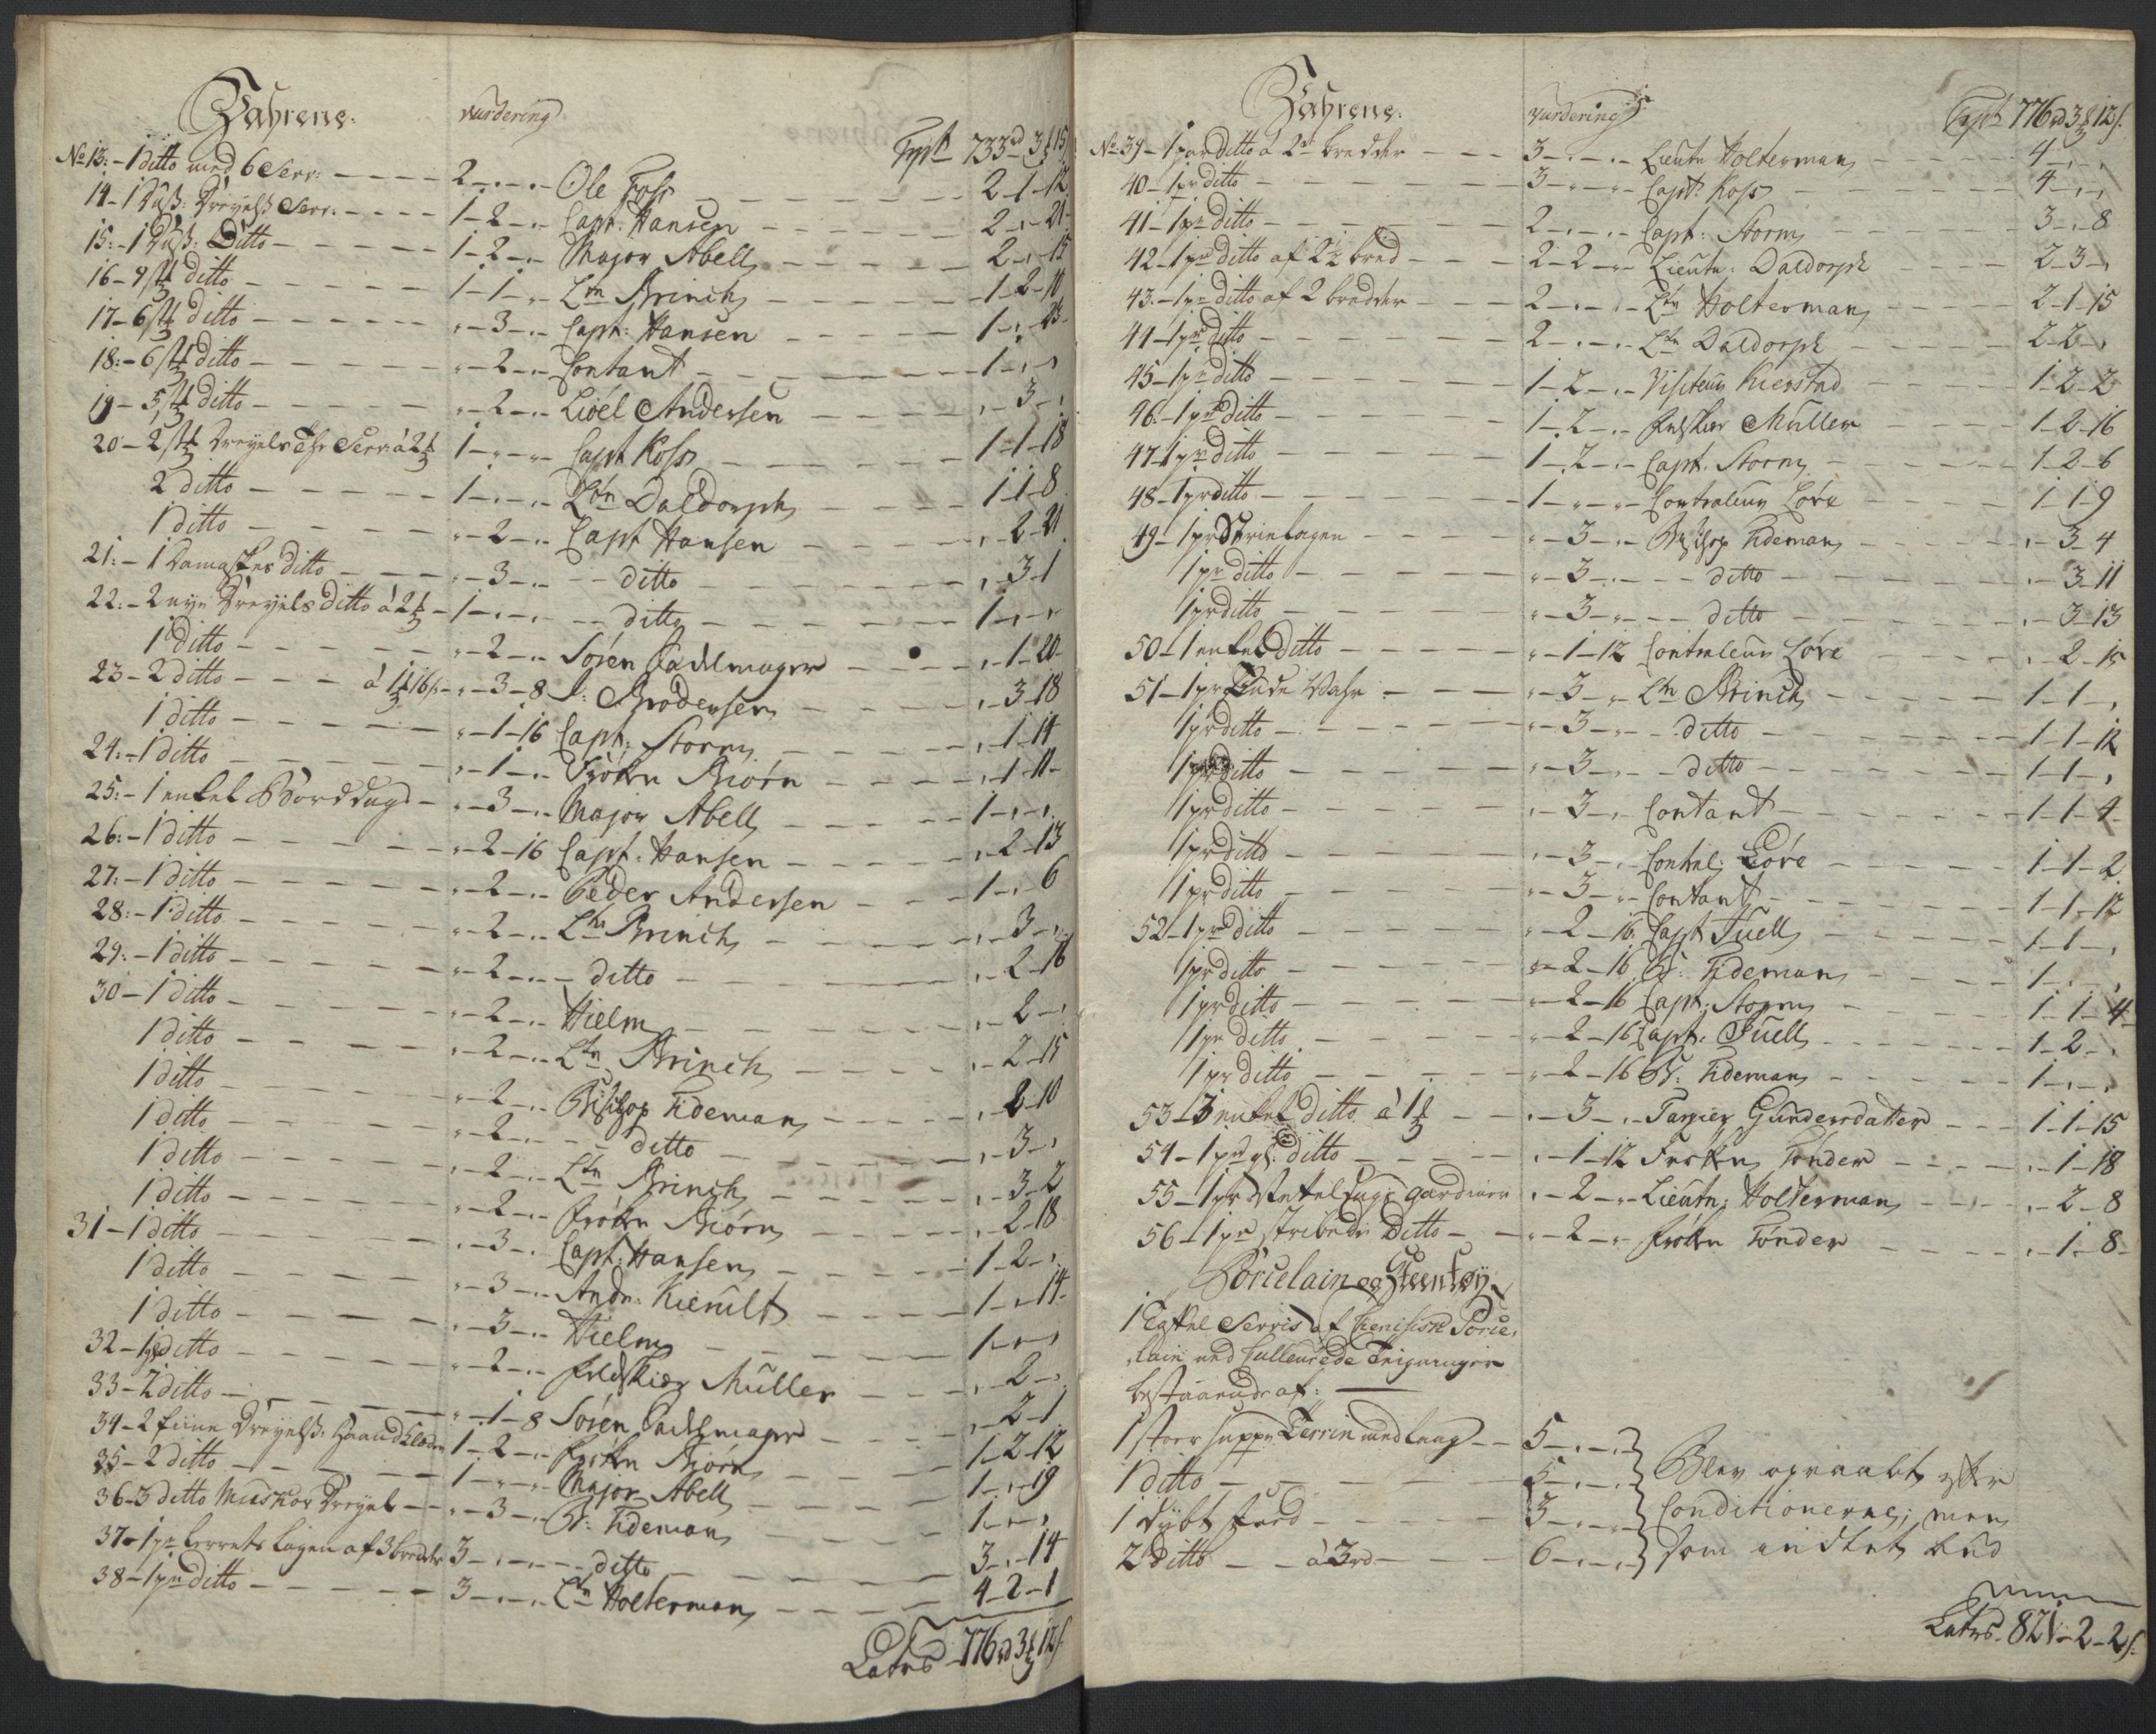 Vahrene. vurdering Trspt 733rd 3 15
No 13: - 1 ditto med 6 Serv: 2 - „ - „ Ole Foss 2 - 1 - 12
14 - 1 Duss: Dreyels Serv: 1 - 2 - „ Capt: Hansen 2 - „ - 21
15: - 1 Duss: Ditto 1 - 2 - „ Major Abell 2 - „ - 15
16 - 9 st ditto 1 - 1 - „ Ltn Brinch 1 - 2 - 10
17 - 6 st ditto „ - 3 - „ Capt: Hansen 1 - „ - 23
18: - 6 st ditto „ - 2 - „ Contant 1 - „ - „
19 - 5 st ditto „ - 2 - „ Lioel Andersen „ - 3 - „
20 - 2 st Dreyels The Serv: à 2 1 - „ - „ Capt Koss 1 - 1 - 18
2 ditto 1 - „ - „ Ltn Daldorph 1 - 1 - 8
1 ditto „ - 2 - „ Capt Hansen „ - 2 - 21
21: - 1 Damaskes ditto „ - 3 - „ ditto „ - 3 - 1
22: - 2 nye Dreyels ditto à 2 1 - „ - „ ditto 1 - „ - „
1 ditto „ - 2 - „ Sören Sadelmager „ - 1 - 20
23 - 2 ditto à 1 16 s „ - 3 - 8 Brodersen „ - 3 - 18
1 ditto „ - 1 - 16 Capt: Storm „ - 1 - 14
24: - 1 ditto „ - 1 - „ Fröken Biörn „ - 1 - 11
25: - 1 enkel Bord dug „ - 3 - „ Major Abell 1 - „ - „
26: - 1 ditto „ - 2 - 16 Capt: Hansen „ - 2 - 13
27: - 1 ditto „ - 2 - „ Peder Andersen 1 - „ - 6
28: - 1 ditto „ - 2 - „ Ltn Brinch „ - 3 - „
29: - 1 ditto „ - 2 - „ ditto „ - 2 - 16
30 - 1 ditto „ - 2 - „ Hielm „ - 2 - „
1 ditto „ - 2 - „ Ltn Brinch „ - 2 - 15
1 ditto „ - 2 - „ Bishop Tideman „ - 2 - 10
1 ditto „ - 2 - „ ditto „ - 3 - „
1 ditto „ - 2 - „ Ltn Brinch „ - 3 - 2
1 ditto „ - 2 - „ Fröken Biörn „ - 2 - 18
31 - 1 ditto „ - 3 - „ Capt: Hansen 1 - 2 - „
1 ditto „ - 3 - „ Andr: Kierulf 1 - „ - 14
1 ditto „ - 3 - „ Hielm 1 - „ - „
32 - 1 ditto „ - 2 - „ Feldskier Müller „ - 2 - „
33 - 2 ditto „ - 1 - 8 Sören Sadelmager „ - 2 - 1
34 - 2 fiine Dreyels: Haandklæder 1 - 2 - „ Fröken Biörn 1 - 2 - 12
35 - 2 ditto 1 - „ - „ Major Abell 1 - „ - 19
36 - 3 ditto Dreyel „ - 3 - „ B: Tideman 1 - „ - „
37 - 1 pr Lerrets Lagen af 3 bredder 3 - „ - „ ditto 3 - „ - 14
38 - 1 pr ditto 3 - „ - „ Ltn Holterman 4 - 2 - 1
Latus 776 rd 3 12 s

Vahrene. vurdering Trspt 776 rd 3 12 s.
No 39 - 1 par ditto à 2 bredder 3 - „ - „ Lieutn Holterman 4 - „ - „
40 - 1 pr ditto 3 - „ - „ Capt: Koss 4 - „ - „
41 - 1 pr ditto 2 - „ - „ Capt: Storm 3 - „ - 8
42 - 1 pr ditto af 2½ bred 2 - 2 - „ Lieutn: Daldorph 2 - 3 - „
43. - 1 pr ditto af 2 bredder 2 - „ - „ Ltn Holterman 2 - 1 - 15
44 - 1 pr ditto 2 - „ - „ Ltn Daldorph 2 - 2 - „
45 - 1 pr ditto 1 - 2 - „ Visiteur Kierstad 1 - 2 - 2
46. - 1 pr ditto 1 - 2 - „ Feldskier Müller 1 - 2 - 16
47 - 1 pr ditto 1 - 2 - „ Capt. Storm 1 - 2 - 6
48 - 1 pr ditto 1 - „ - „ Contraleur Löve 1 - 1 - 9
49 - 1 pr Strie Lagen „ - 3 - „ Bishop Tideman „ - 3 - 4
1 pr ditto „ - 3 - „ ditto „ - 3 - 11
1 pr ditto „ - 3 - „ ditto „ - 3 - 13
50 - 1 enkel ditto „ - 1 - 12 Contraleur Löve „ - 2 - 15
51 - 1 pr Pude Vahr „ - 3 - „ Ltn Brinch 1 - 1 - „
1 pr ditto „ - 3 - „ ditto 1 - 1 - 12
1 pr ditto „ - 3 - „ ditto 1 - 1 - „
1 pr ditto „ - 3 - „ Contant 1 - 1 - 4
1 pr ditto „ - 3 - „ Contral: Löve 1 - 1 - 2
1 pr ditto „ - 3 - „ Contant 1 - 1 - 12
52 - 1 pr ditto „ - 2 - 16 Capt Juell 1 - 1 - „
1 pr ditto „ - 2 - 16 B: Tideman 1 - „ - „
1 pr ditto „ - 2 - 16 Capt: Storm 1 - 1 - 4
1 pr ditto „ - 2 - 16 Capt: Juell 1 - 2 - „
1 pr ditto „ - 2 - 16 B: Tideman 1 - „ - „
53 - 3 enkel ditto à 1 „ - 3 - „ Gundersdatter 1 - 1 - 15
54 - 1 pr gl: ditto „ - 1 - 12 Fröken Tönder „ - 1 - 18
55 - 1 pr gardiner „ - 2 - „ Lieutn: Holterman „ - 2 - 8
56 - 1 pr stribede Ditto „ - 2 - „ Fröken Tönder „ - 1 - 8
Porcelain og Steentöy
1 Taffel Servis af Cienisisk Porce-
lain med Culleurede Teigninger
bestaaende af:
1 stoer Suppe Terrin med laag 5 - „ - „
1 ditto 5 - „ - „ Blev opraabt efter
1 dybt fad 3 - „ - „ Conditionerne; men
2 ditto à 3 rd 6 - „ - „ som indtet bud
Latus 821 - 2 - 2 s.